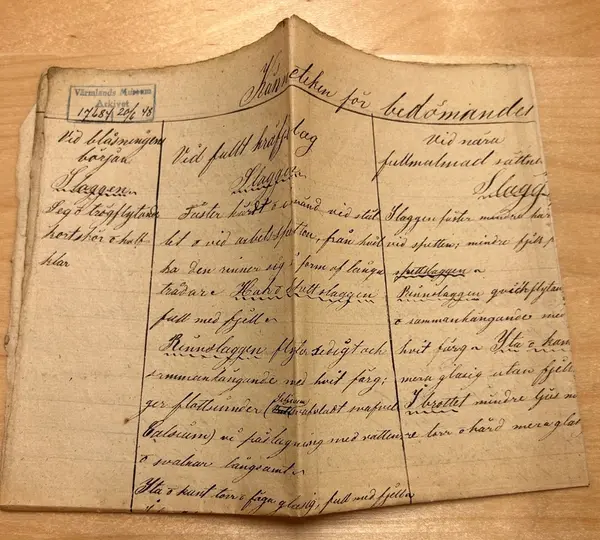 Värmlands Museum
Arkivet
17684 20/6 48
Känne cken för bedömandet
Vid blåsningens
början
Slaggen
Seg o trögflytande
kortbör o holt
klar
Vid fullt kräfslag
Slaggen
Fäster hårdt o e vänd vid stål
let o vid arbetsspetten, från hvil
ka den rinner sig i form af långa
trådar. Hård Sattslaggen
full med fjell
Rinnslaggen flyter sedigt och
sammanhängande med hvit färg;
ger flottsunder (Silicium
svafladt svafvel
Calsium) vi påslagning med vatten
o svalnar långsamt
Yta o kant torr o föga glasig, full med fjell
Vid nära
fullmalmad sätten
Slagg
Slaggen fäster mindre här
vid spetten; mindre fjell
spettslaggen
Rinnslaggen qvickflytan
o sammanhängande med
hvit färg Yta o kan
mera glasig utan fjell
I brottet mindre ljus
re torr o hård mera glas